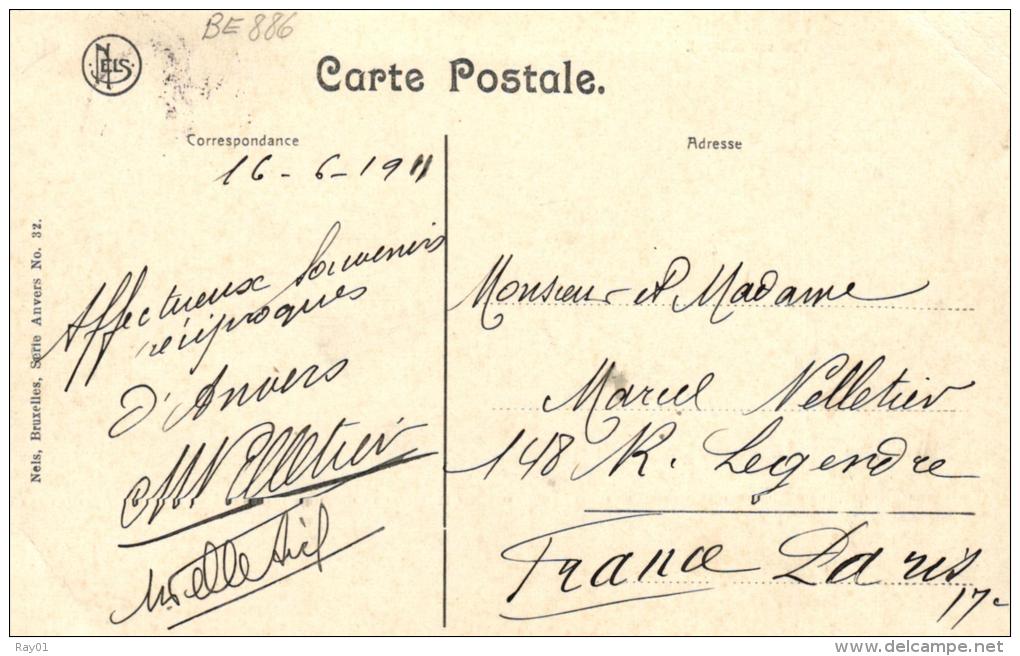 BE 886
NELS
Carte Postale.
Correspondance
Adresse
16-6-1911
Affectueux Souvenirs
réciproques
d'Anvers
Pelletier
Monsieur et Madame
Marcel Pelletier
148 R. Legendre
France Paris
17e
Nels, Bruxelles, Serie Anvers No. 32.
Ray01
delcampe.net